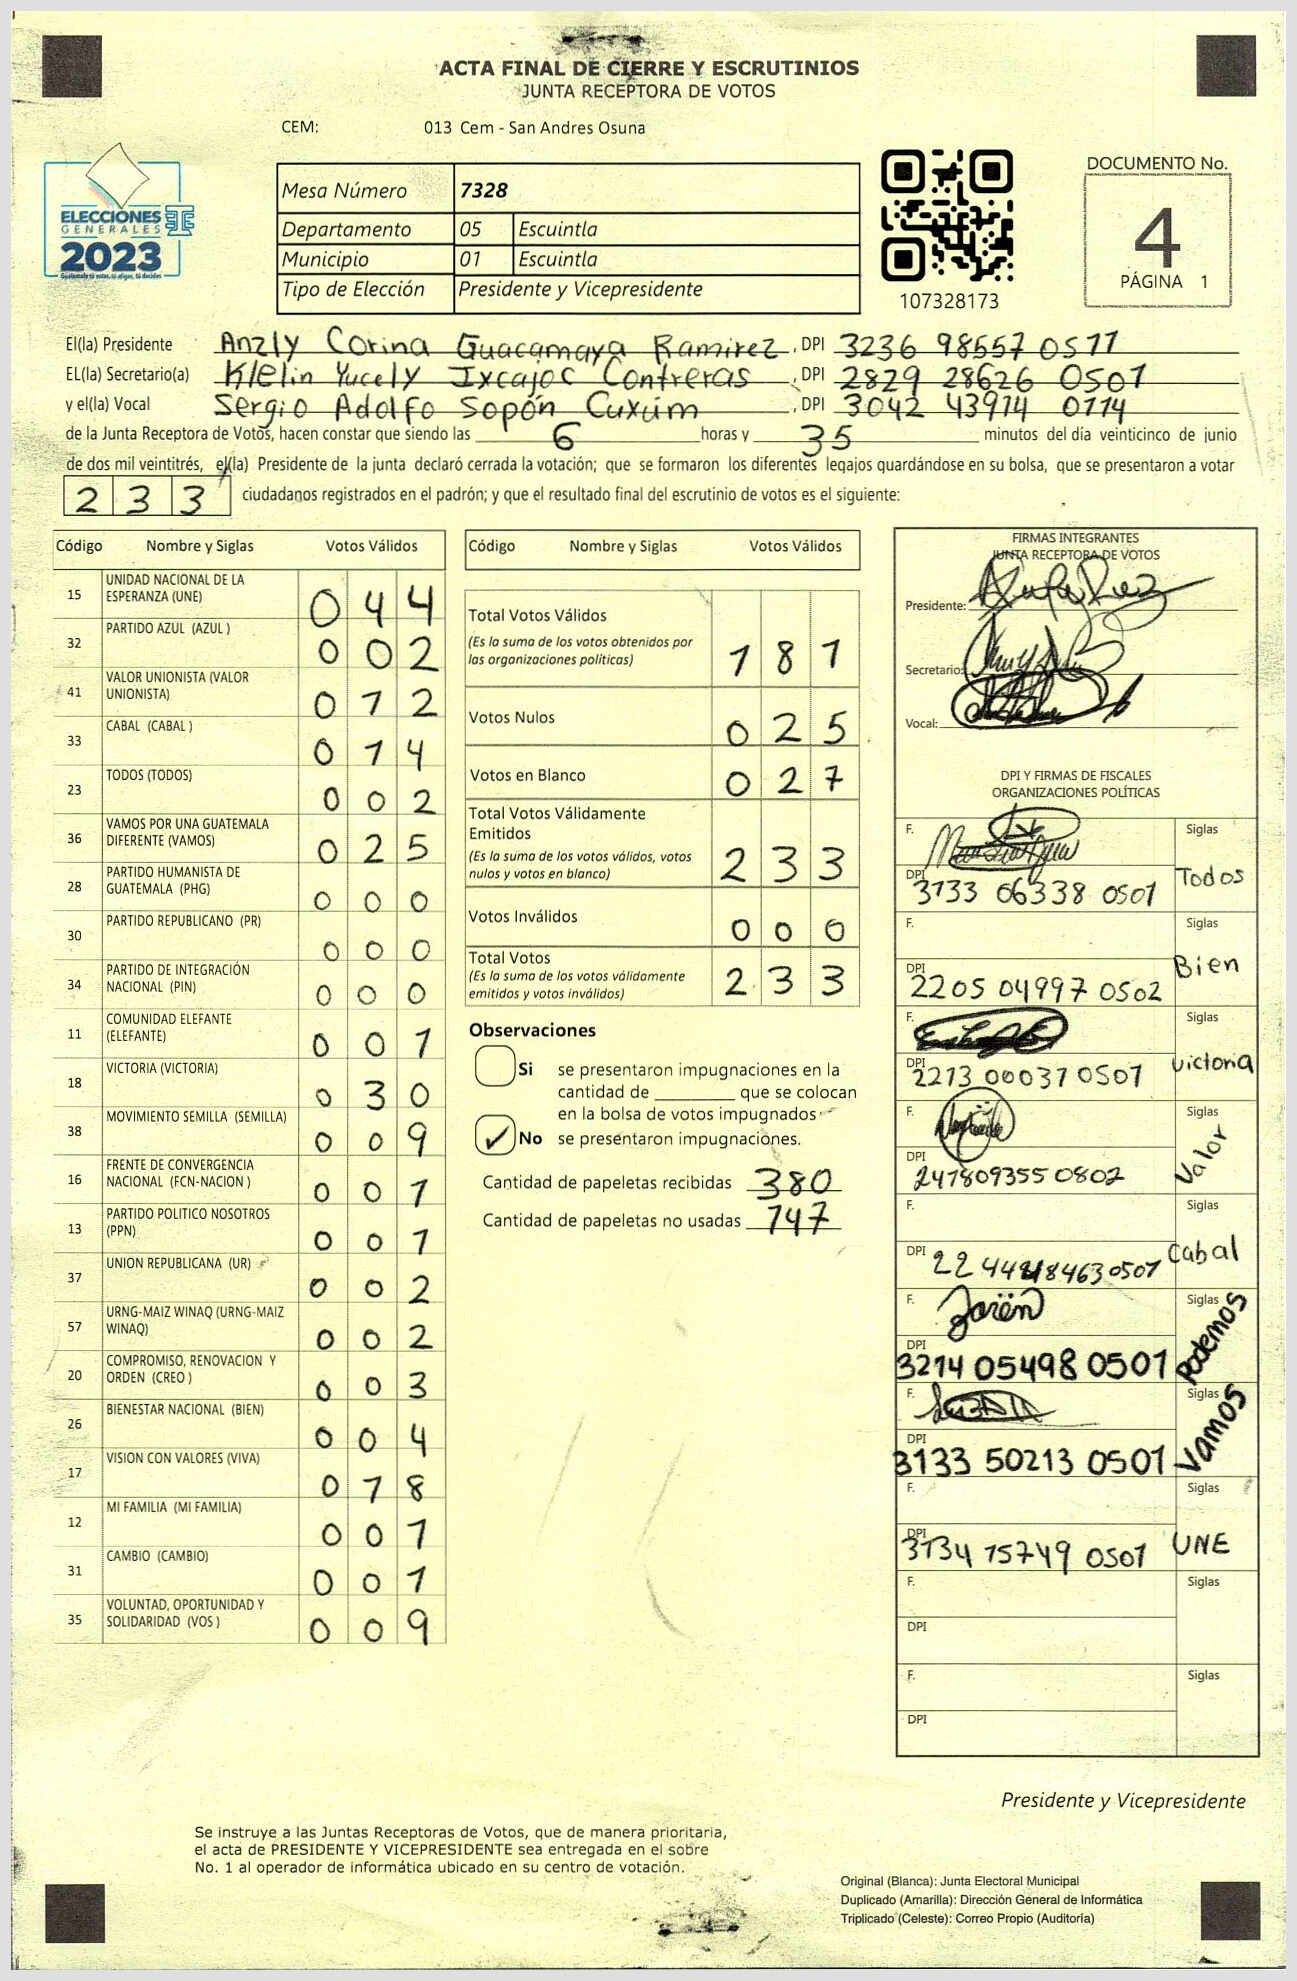 ACTA FINAL DE CIERRE Y ESCRUTINIOS
JUNTA RECEPTORA DE VOTOS
CEM: 013 Cem - San Andres Osuna
ELECCIONES
GENERALES
2023
Mesa Número 7328
Departamento 05 Escuintla
Municipio 01 Escuintla
Tipo de Elección Presidente y Vicepresidente
107328173
DOCUMENTO No.
4
PÁGINA 1
El(la) Presidente Anzly Corina Guacamaya Ramirez, DPI 3236 98557 0511
EL(la) Secretario(a) Klelin Yucely Ixcajoc Contreras, DPI 2829 28626 0501
y el(la) Vocal Sergio Adolfo Sopón Cuxúm, DPI 3042 43914 0114
de la Junta Receptora de Votos, hacen constar que siendo las 6 horas y 35 minutos del día veinticinco de junio
de dos mil veintitrés, el(la) Presidente de la junta declaró cerrada la votación; que se formaron los diferentes legajos guardándose en su bolsa, que se presentaron a votar
233 ciudadanos registrados en el padrón; y que el resultado final del escrutinio de votos es el siguiente:
Código Nombre y Siglas Votos Válidos
15 UNIDAD NACIONAL DE LA
ESPERANZA (UNE) 044
32 PARTIDO AZUL (AZUL ) 002
41 VALOR UNIONISTA (VALOR
UNIONISTA) 012
33 CABAL (CABAL ) 014
23 TODOS (TODOS) 002
36 VAMOS POR UNA GUATEMALA
DIFERENTE (VAMOS) 025
28 PARTIDO HUMANISTA DE
GUATEMALA (PHG) 000
30 PARTIDO REPUBLICANO (PR) 000
34 PARTIDO DE INTEGRACIÓN
NACIONAL (PIN) 000
11 COMUNIDAD ELEFANTE
(ELEFANTE) 001
18 VICTORIA (VICTORIA) 030
38 MOVIMIENTO SEMILLA (SEMILLA) 009
16 FRENTE DE CONVERGENCIA
NACIONAL (FCN-NACION ) 001
13 PARTIDO POLITICO NOSOTROS
(PPN) 001
37 UNION REPUBLICANA (UR) 002
57 URNG-MAIZ WINAQ (URNG-MAIZ
WINAQ) 002
20 COMPROMISO, RENOVACION Y
ORDEN (CREO ) 003
26 BIENESTAR NACIONAL (BIEN) 004
17 VISION CON VALORES (VIVA) 018
12 MI FAMILIA (MI FAMILIA) 001
31 CAMBIO (CAMBIO) 001
35 VOLUNTAD, OPORTUNIDAD Y
SOLIDARIDAD (VOS ) 009
Código Nombre y Siglas Votos Válidos
Total Votos Válidos
(Es la suma de los votos obtenidos por
las organizaciones políticas) 181
Votos Nulos 025
Votos en Blanco 027
Total Votos Válidamente
Emitidos
(Es la suma de los votos válidos, votos
nulos y votos en blanco) 233
Votos Inválidos 000
Total Votos
(Es la suma de los votos válidamente
emitidos y votos inválidos) 233
Observaciones
Si se presentaron impugnaciones en la
cantidad de ________ que se colocan
en la bolsa de votos impugnados
No se presentaron impugnaciones.
Cantidad de papeletas recibidas 380
Cantidad de papeletas no usadas 147
FIRMAS INTEGRANTES
JUNTA RECEPTORA DE VOTOS
Presidente:
Secretario:
Vocal:
DPI Y FIRMAS DE FISCALES
ORGANIZACIONES POLÍTICAS
F. Siglas
DPI 3133 06338 0501 Todos
F. Siglas
DPI 2205 04997 0502 Bien
F. Siglas
DPI 2213 00037 0501 Victoria
F. Siglas
DPI 247809355 0802 Valor
F. Siglas
DPI Cabal
F. Siglas
DPI 3214 05498 0501 Podemos
F. Siglas
DPI 3133 50213 0501 Vamos
F. Siglas
DPI 3134 15749 0501 UNE
F. Siglas
DPI
F. Siglas
DPI
Presidente y Vicepresidente
Se instruye a las Juntas Receptoras de Votos, que de manera prioritaria,
el acta de PRESIDENTE Y VICEPRESIDENTE sea entregada en el sobre
No. 1 al operador de informática ubicado en su centro de votación.
Original (Blanca): Junta Electoral Municipal
Duplicado (Amarilla): Dirección General de Informática
Triplicado (Celeste): Correo Propio (Auditoría)